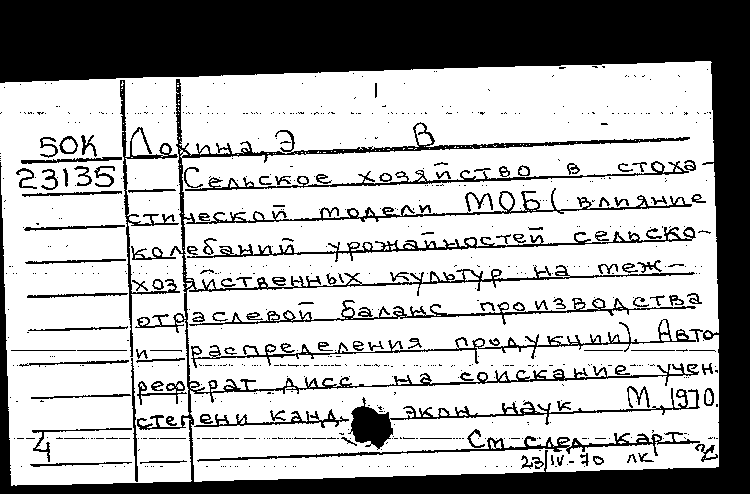 50К Лохина, Э В
23135 Сельское хозяйство в стоха-
стической модели МОБ (влияние
колебаний урожайностей сельско-
хозяйственных культур на меж-
отраслевой баланс производства
и распределения продукции). Авто-
реферат дисс. на соискание учен.
степени канд. экон. наук. М., 1970.
4 См. след. карт.
23/IV-70 лк